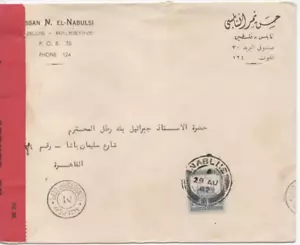 SSAN N. EL-NABULSI
BLUS - PALESTINE
P. O. B.
PHONE 124
حسن نمر النابلسي
نابلس - فلسطين
صندوق البريد ٣٠
تلفون ١٢٤
حضرة الاستاذ جبرائيل بك المحترم
شارع سليمان باشا - رقم
القاهرة
NABLUS
29 AU